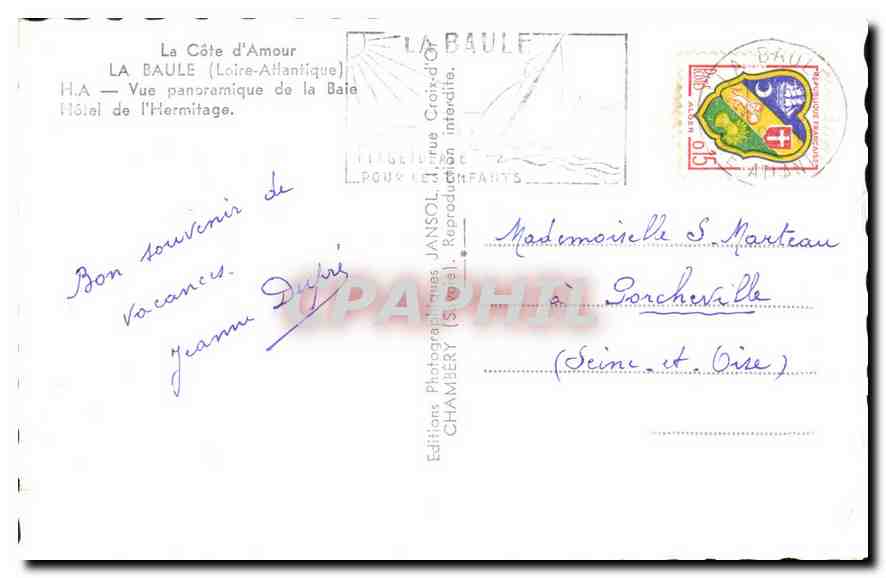 La Côte d'Amour
LA BAULE (Loire-Atlantique)
H.A — Vue panoramique de la Baie
Hôtel de l'Hermitage.
LA BAULE
POUR LES ENFANTS
Bon souvenir de
vacances.
Jeanne Dupré
Editions Photographiques JANSOL, 1, rue Croix-d'Or
CHAMBÉRY (Savoie). Reproduction interdite.
LA BAULE
REPUBLIQUE FRANÇAISE
ALGER
0,15
Mademoiselle S. Marteau
à Porcheville
(Seine-et-Oise)
CPAPHIL